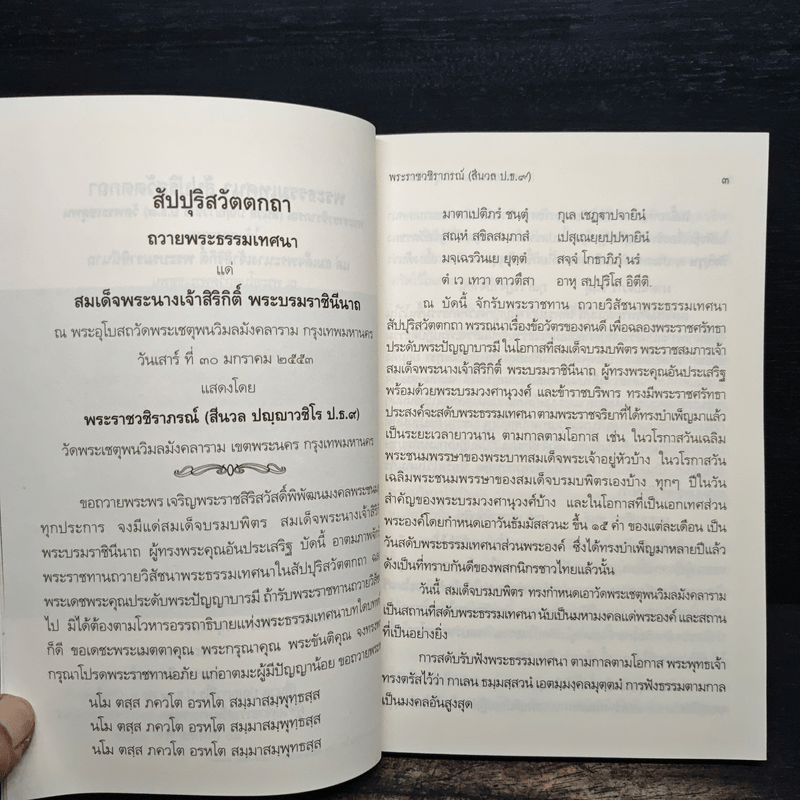 สัปปุริสวัตตกถา
ถวายพระธรรมเทศนา
แด่
สมเด็จพระนางเจ้าสิริกิติ์ พระบรมราชินีนาถ
ณ พระอุโบสถวัดพระเชตุพนวิมลมังคลาราม กรุงเทพมหานคร
วันเสาร์ ที่ ๓๐ มกราคม ๒๕๕๓
แสดงโดย
พระราชวชิราภรณ์ (สีนวล ปญฺญาวชิโร ป.ธ.๙)
วัดพระเชตุพนวิมลมังคลาราม เขตพระนคร กรุงเทพมหานคร
ขอถวายพระพร เจริญพระราชสิริสวัสดิ์พิพัฒนมงคลพระชนม
ทุกประการ จงมีแด่สมเด็จบรมบพิตร สมเด็จพระนางเจ้าสิริกิติ์
พระบรมราชินีนาถ ผู้ทรงพระคุณอันประเสริฐ บัดนี้ อาตมภาพจัก
พระราชทานถวายวิสัชนาพระธรรมเทศนาในสัปปุริสวัตตกถา
พระเดชพระคุณประดับพระปัญญาบารมี ถ้ารับพระราชทานถวายวิสัช
ไป มิได้ต้องตามโวหารอรรถาธิบายแห่งพระธรรมเทศนาบทใดบทหนึ่ง
ก็ดี ขอเดชะพระเมตตาคุณ พระกรุณาคุณ พระขันติคุณ จงทรงพระ
กรุณาโปรดพระราชทานอภัย แก่อาตมะผู้มีปัญญาน้อย ขอถวายพระพร
นโม ตสฺส ภควโต อรหโต สมฺมาสมฺพุทฺธสฺส
นโม ตสฺส ภควโต อรหโต สมฺมาสมฺพุทฺธสฺส
นโม ตสฺส ภควโต อรหโต สมฺมาสมฺพุทฺธสฺส
พระราชวชิราภรณ์ (สีนวล ป.ธ.๙) ๓
มาตาเปติภรํ ชนฺตุํ กุเล เชฏฺฐาปจายินํ
สณฺหํ สขิลสมฺภาสํ เปสุเณยฺยปฺปหายินํ
มจฺเฉรวินเย ยุตฺตํ สจฺจํ โกธาภิภุํ นรํ
ตํ เว เทวา ตาวตึสา อาหุ สปฺปุริโส อิตีติ.
ณ บัดนี้ จักรับพระราชทาน ถวายวิสัชนาพระธรรมเทศนา
สัปปุริสวัตตกถา พรรณนาเรื่องข้อวัตรของคนดี เพื่อฉลองพระราชศรัทธา
ประดับพระปัญญาบารมี ในโอกาสที่สมเด็จบรมบพิตร พระราชสมภารเจ้า
สมเด็จพระนางเจ้าสิริกิติ์ พระบรมราชินีนาถ ผู้ทรงพระคุณอันประเสริฐ
พร้อมด้วยพระบรมวงศานุวงศ์ และข้าราชบริพาร ทรงมีพระราชศรัทธา
ประสงค์จะสดับพระธรรมเทศนา ตามพระราชจริยาที่ได้ทรงบำเพ็ญมาแล้ว
เป็นระยะเวลายาวนาน ตามกาลตามโอกาส เช่น ในวโรกาสวันเฉลิม
พระชนมพรรษาของพระบาทสมเด็จพระเจ้าอยู่หัวบ้าง ในวโรกาสวัน
เฉลิมพระชนมพรรษาของสมเด็จบรมบพิตรเองบ้าง ทุกๆ ปีในวัน
สำคัญของพระบรมวงศานุวงศ์บ้าง และในโอกาสที่เป็นเอกเทศส่วน
พระองค์โดยกำหนดเอาวันธัมมัสสวนะ ขึ้น ๑๕ ค่ำ ของแต่ละเดือน เป็น
วันสดับพระธรรมเทศนาส่วนพระองค์ ซึ่งได้ทรงบำเพ็ญมาหลายปีแล้ว
ดังเป็นที่ทราบกันดีของพสกนิกรชาวไทยแล้วนั้น
วันนี้ สมเด็จบรมบพิตร ทรงกำหนดเอาวัดพระเชตุพนวิมลมังคลาราม
เป็นสถานที่สดับพระธรรมเทศนา นับเป็นมหามงคลแด่พระองค์ และสถาน
ที่เป็นอย่างยิ่ง
การสดับรับฟังพระธรรมเทศนา ตามกาลตามโอกาส พระพุทธเจ้า
ทรงตรัสไว้ว่า กาเลน ธมฺมสฺสวนํ เอตมฺมงฺคลมุตฺตมํ การฟังธรรมตามกาล
เป็นมงคลอันสูงสุด